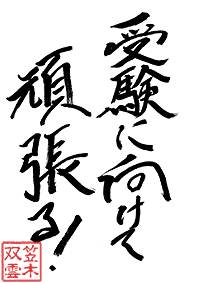 受験に向けて
頑張る！
笠木
双雲